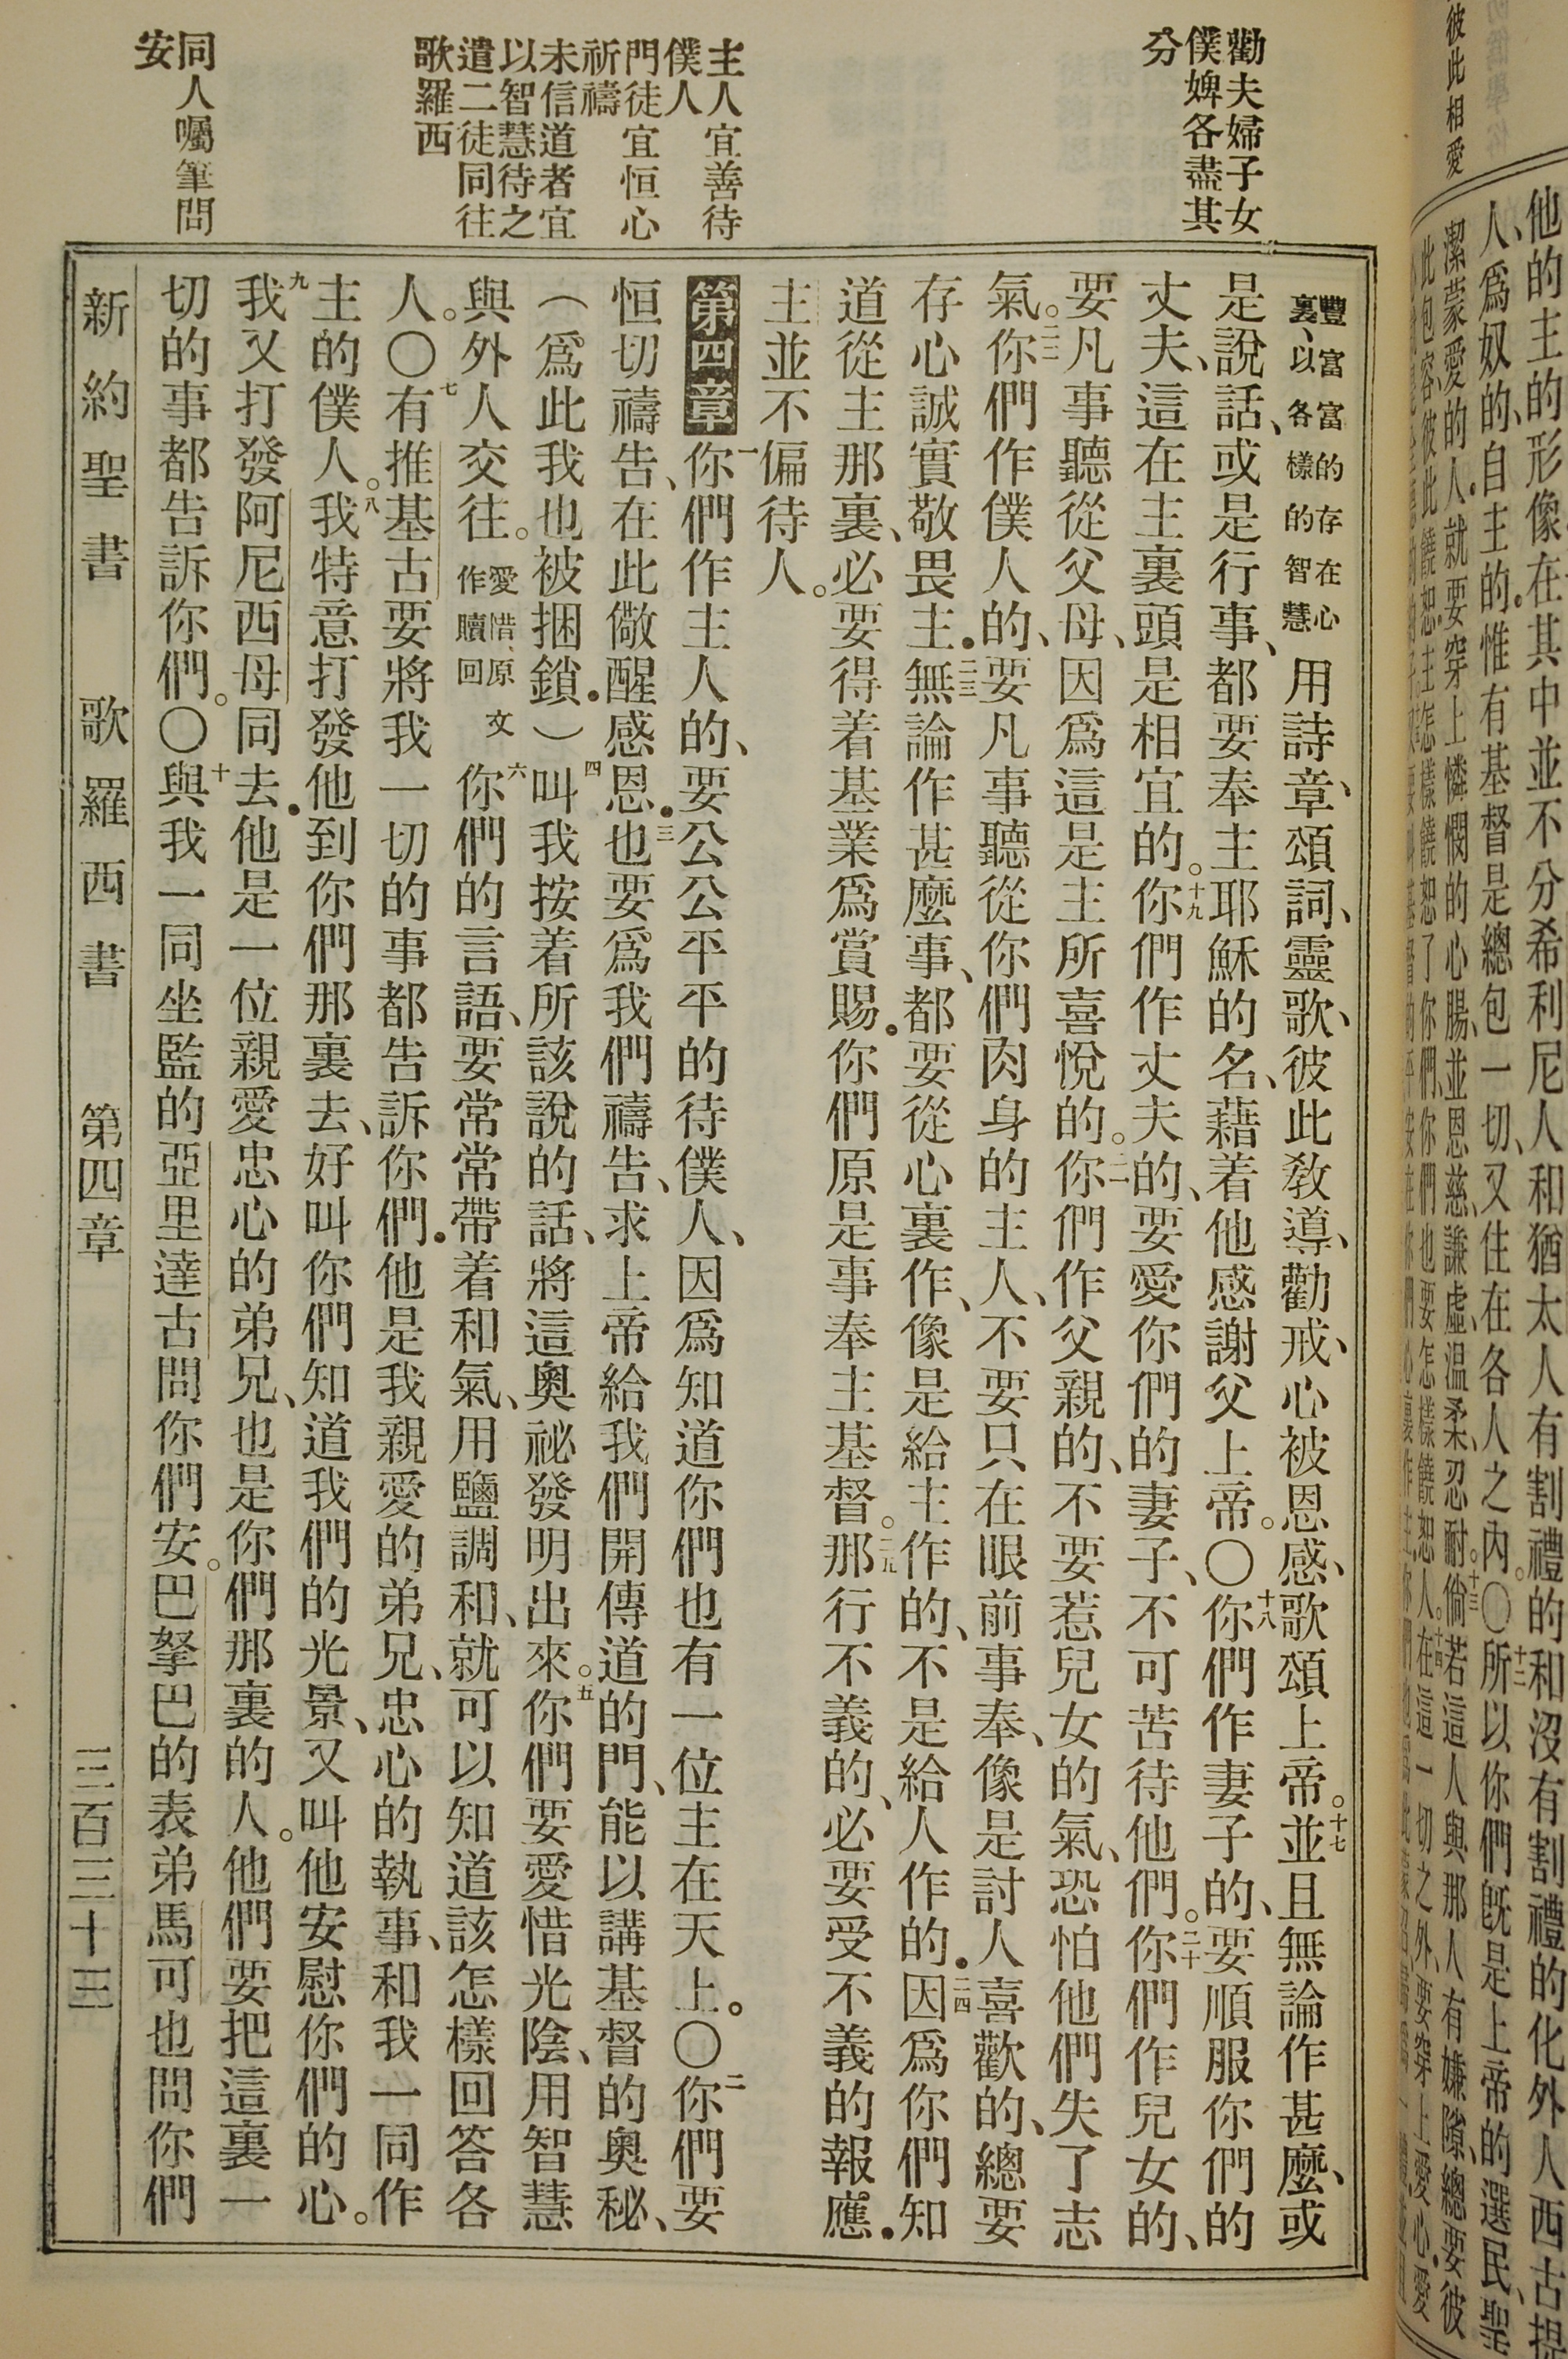 他的主的形像在其中並不分希利尼人和猶太人有割禮的和沒有割禮的化外人西古提
人、爲奴的、自主的惟有基督是總包一切、又住在各人之內。〇十二所以你們旣是上帝的選民、聖
潔蒙愛的人、就要穿上憐憫的心腸、並恩慈、謙虛、温柔、忍耐。十三倘若這人與那人有嫌隙、總要彼
此包容、彼此饒恕主怎樣饒恕了你們、你們也要怎樣饒恕人。十四在這一切之外、要穿上愛心、愛
彼此相愛
勸夫婦子女
僕婢各盡其
分
主人宜善待
僕人
門徒宜恒心
祈禱
未信道者宜
以智慧待之
遣二徒同往
歌羅西
同人囑筆問
安
豐富富的存在心
裏、以各樣的智慧
用詩章、頌詞、靈歌、彼此敎導、勸戒、心被恩感、歌頌上帝。十七並且無論作甚麼、或
是說話、或是行事、都要奉主耶穌的名、藉着他感謝父上帝。〇十八你們作妻子的、要順服你們的
丈夫、這在主裏頭是相宜的。十九你們作丈夫的、要愛你們的妻子、不可苦待他們。二十你們作兒女的、
要凡事聽從父母、因爲這是主所喜悅的。二一你們作父親的、不要惹兒女的氣、恐怕他們失了志
氣。二二你們作僕人的、要凡事聽從你們肉身的主人、不要只在眼前事奉、像是討人喜歡的、總要
存心誠實敬畏主．二三無論作甚麼事、都要從心裏作、像是給主作的、不是給人作的．二四因爲你們知
道從主那裏、必要得着基業爲賞賜．你們原是事奉主基督。二五那行不義的、必要受不義的報應．
主並不偏待人。
第四章　一你們作主人的、要公公平平的待僕人、因爲知道你們也有一位主在天上。〇二你們要
恒切禱告、在此儆醒感恩．三也要爲我們禱告、求上帝給我們開傳道的門、能以講基督的奧秘、
（爲此我也被捆鎖．）四叫我按着所該說的話、將這奧祕發明出來。五你們要愛惜光陰、用智慧
與外人交往。愛惜、原文
作贖回
六你們的言語、要常常帶着和氣、用鹽調和、就可以知道該怎樣回答各
人。〇七有推基古要將我一切的事都告訴你們．他是我親愛的弟兄、忠心的執事、和我一同作
主的僕人。八我特意打發他到你們那裏去、好叫你們知道我們的光景、又叫他安慰你們的心。
九我又打發阿尼西母同去．他是一位親愛忠心的弟兄、也是你們那裏的人。他們要把這裏一
切的事都告訴你們。〇十與我一同坐監的亞里達古問你們安。巴拏巴的表弟馬可也問你們
新約聖書　歌羅西書　第四章　三百三十三